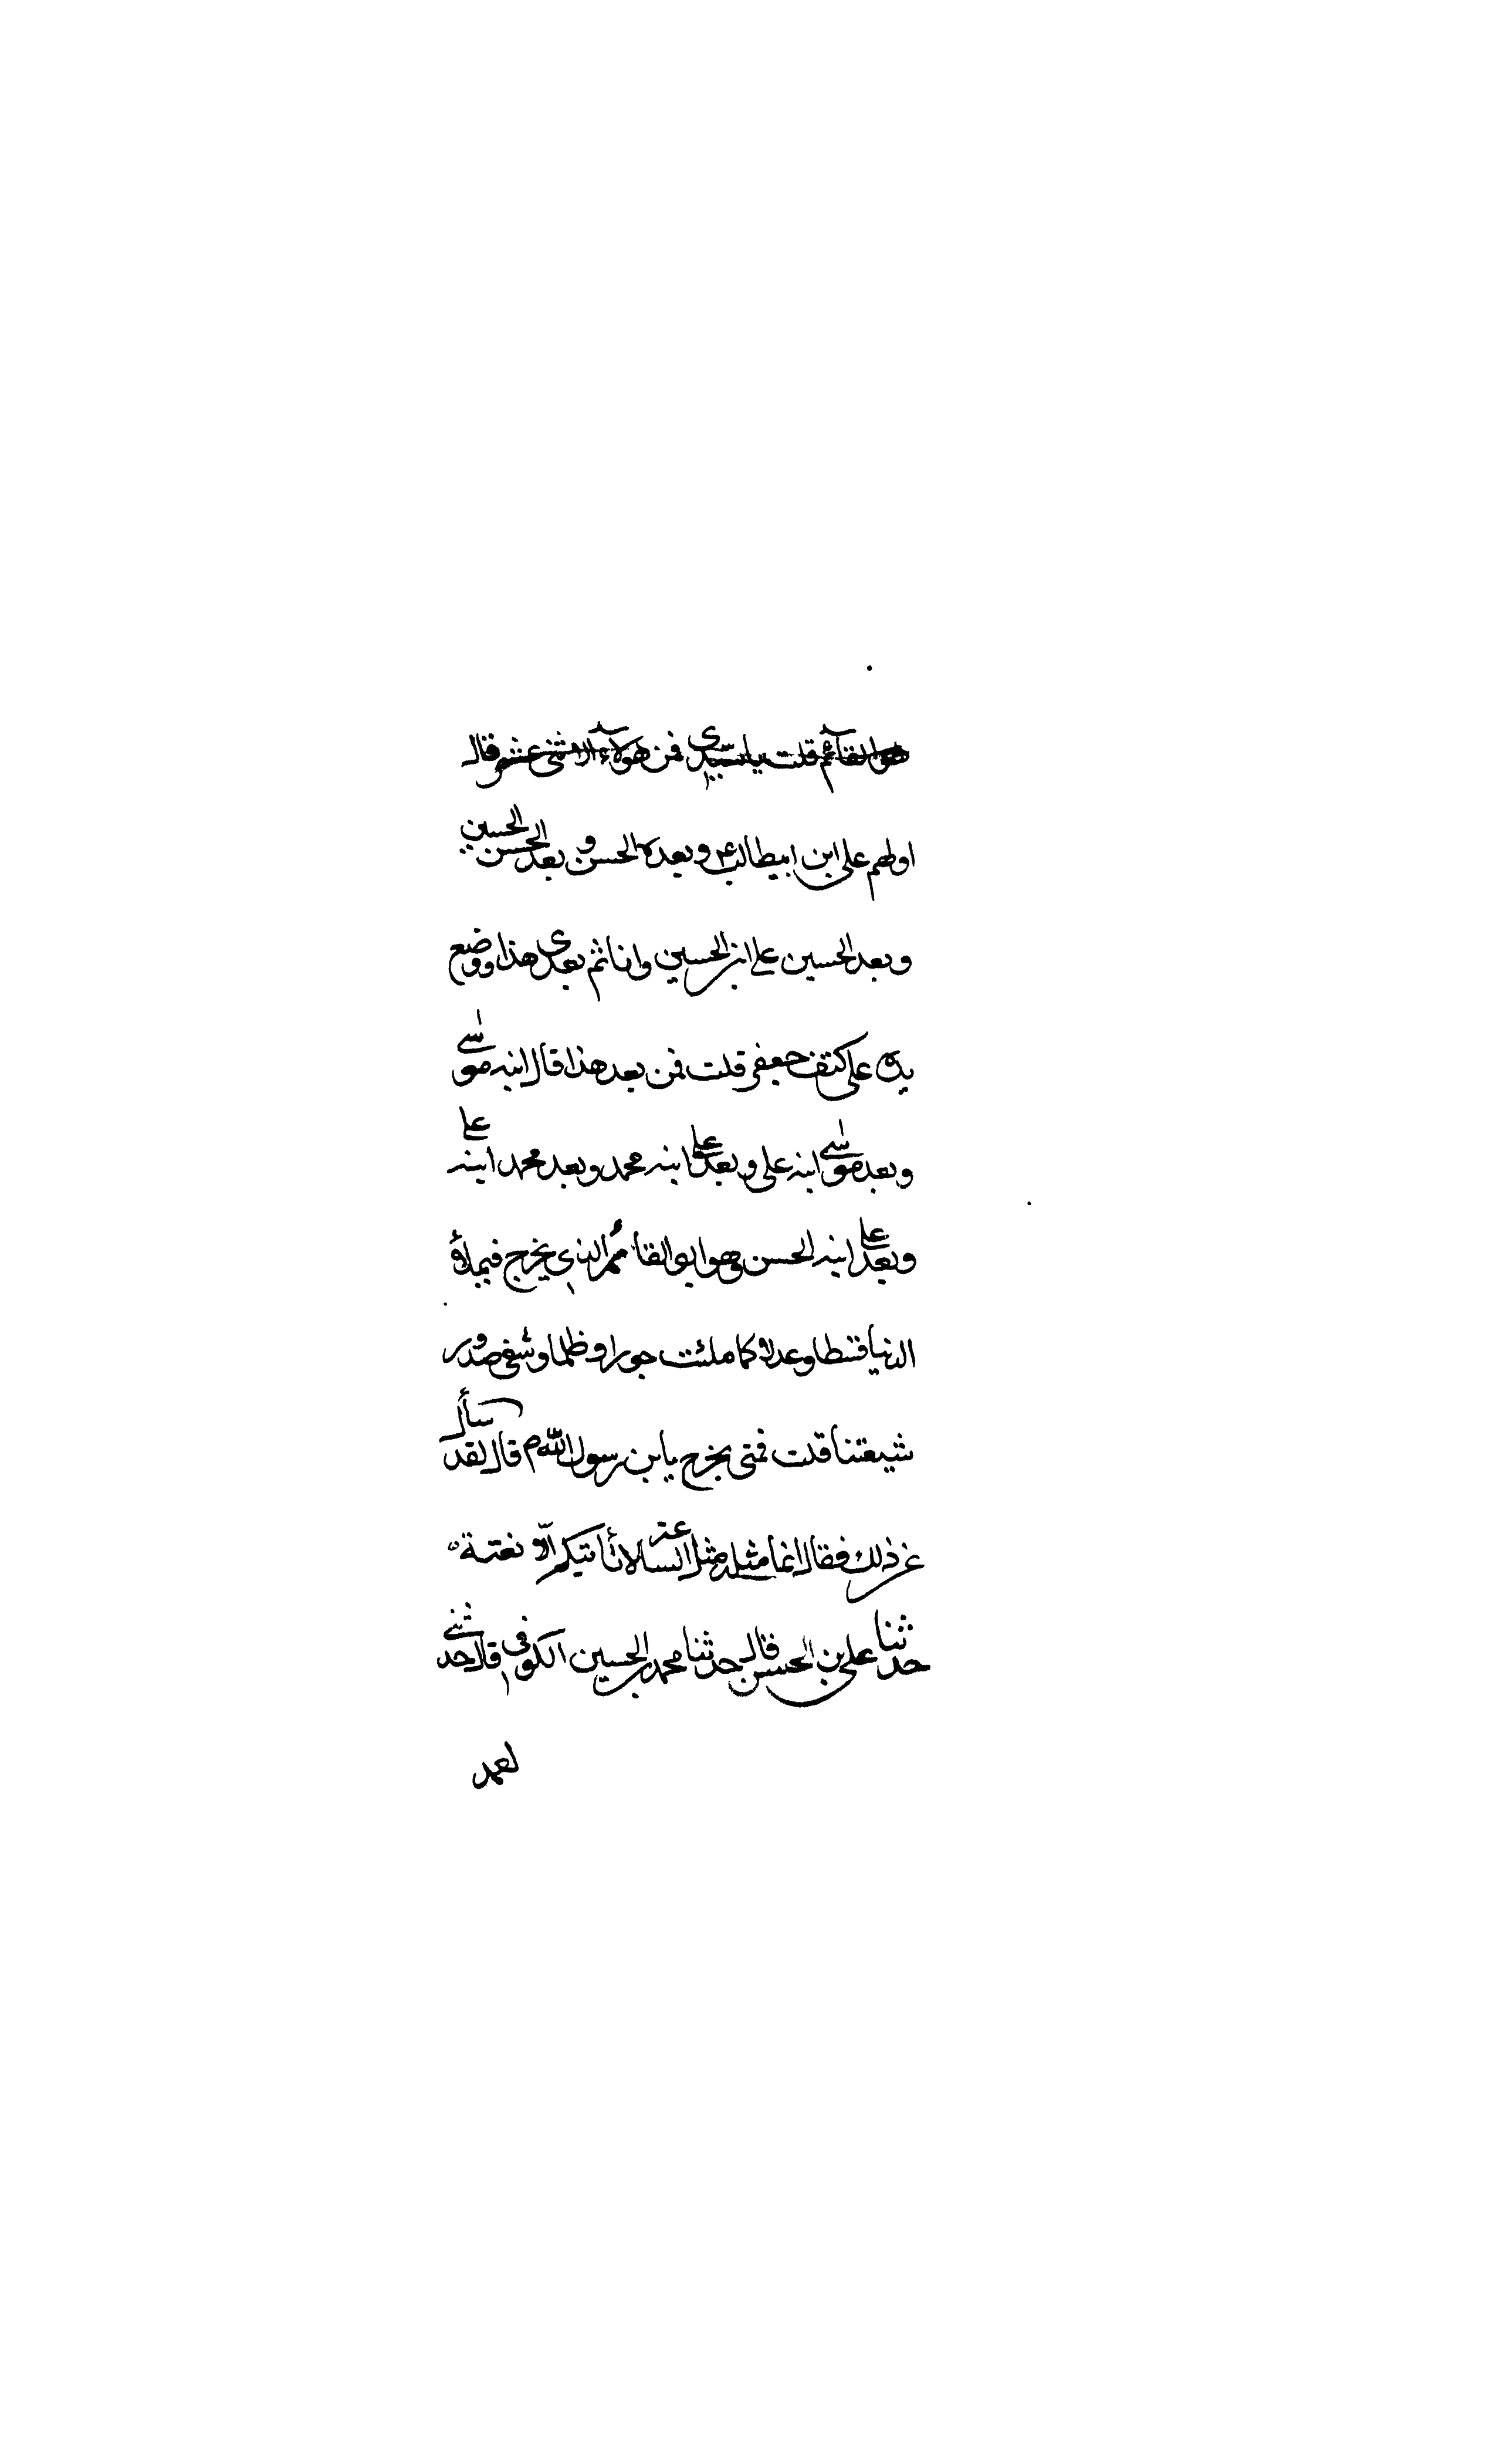 هو القآئم قلت يا سيدي فمن هولآء الاثنى عشر قال
اولهم على ابن ابيطالب ع وبعده الحسن و بعد الحسن الحسين
وبعد الحسين على ابن الحسين وانا ثم بعدى هذا ووضع
يده على كتف جعفر قلت فمن بعد هذا قال ابنه موسى
وبعد موسى ابنه على وبعد على ابنه محمد وبعد محمد ابنه على
وبعد على ابنه الحسن وهو ابو القائم الذي يخرج فيملاء
الدنيا قسطا وعدلا كما ملئت جورا وظلما وشفى صدور
شيعتنا قلت فمتى يخرج يابن رسول الله م قال لقد سأل
عن ذلك فقال انما مثله مثل الساعة لا تأتيكم الا بغتة
حدثنا علي بن الحسن قال حدثنا محمد بن الحسين الكوفي قال حدثنى